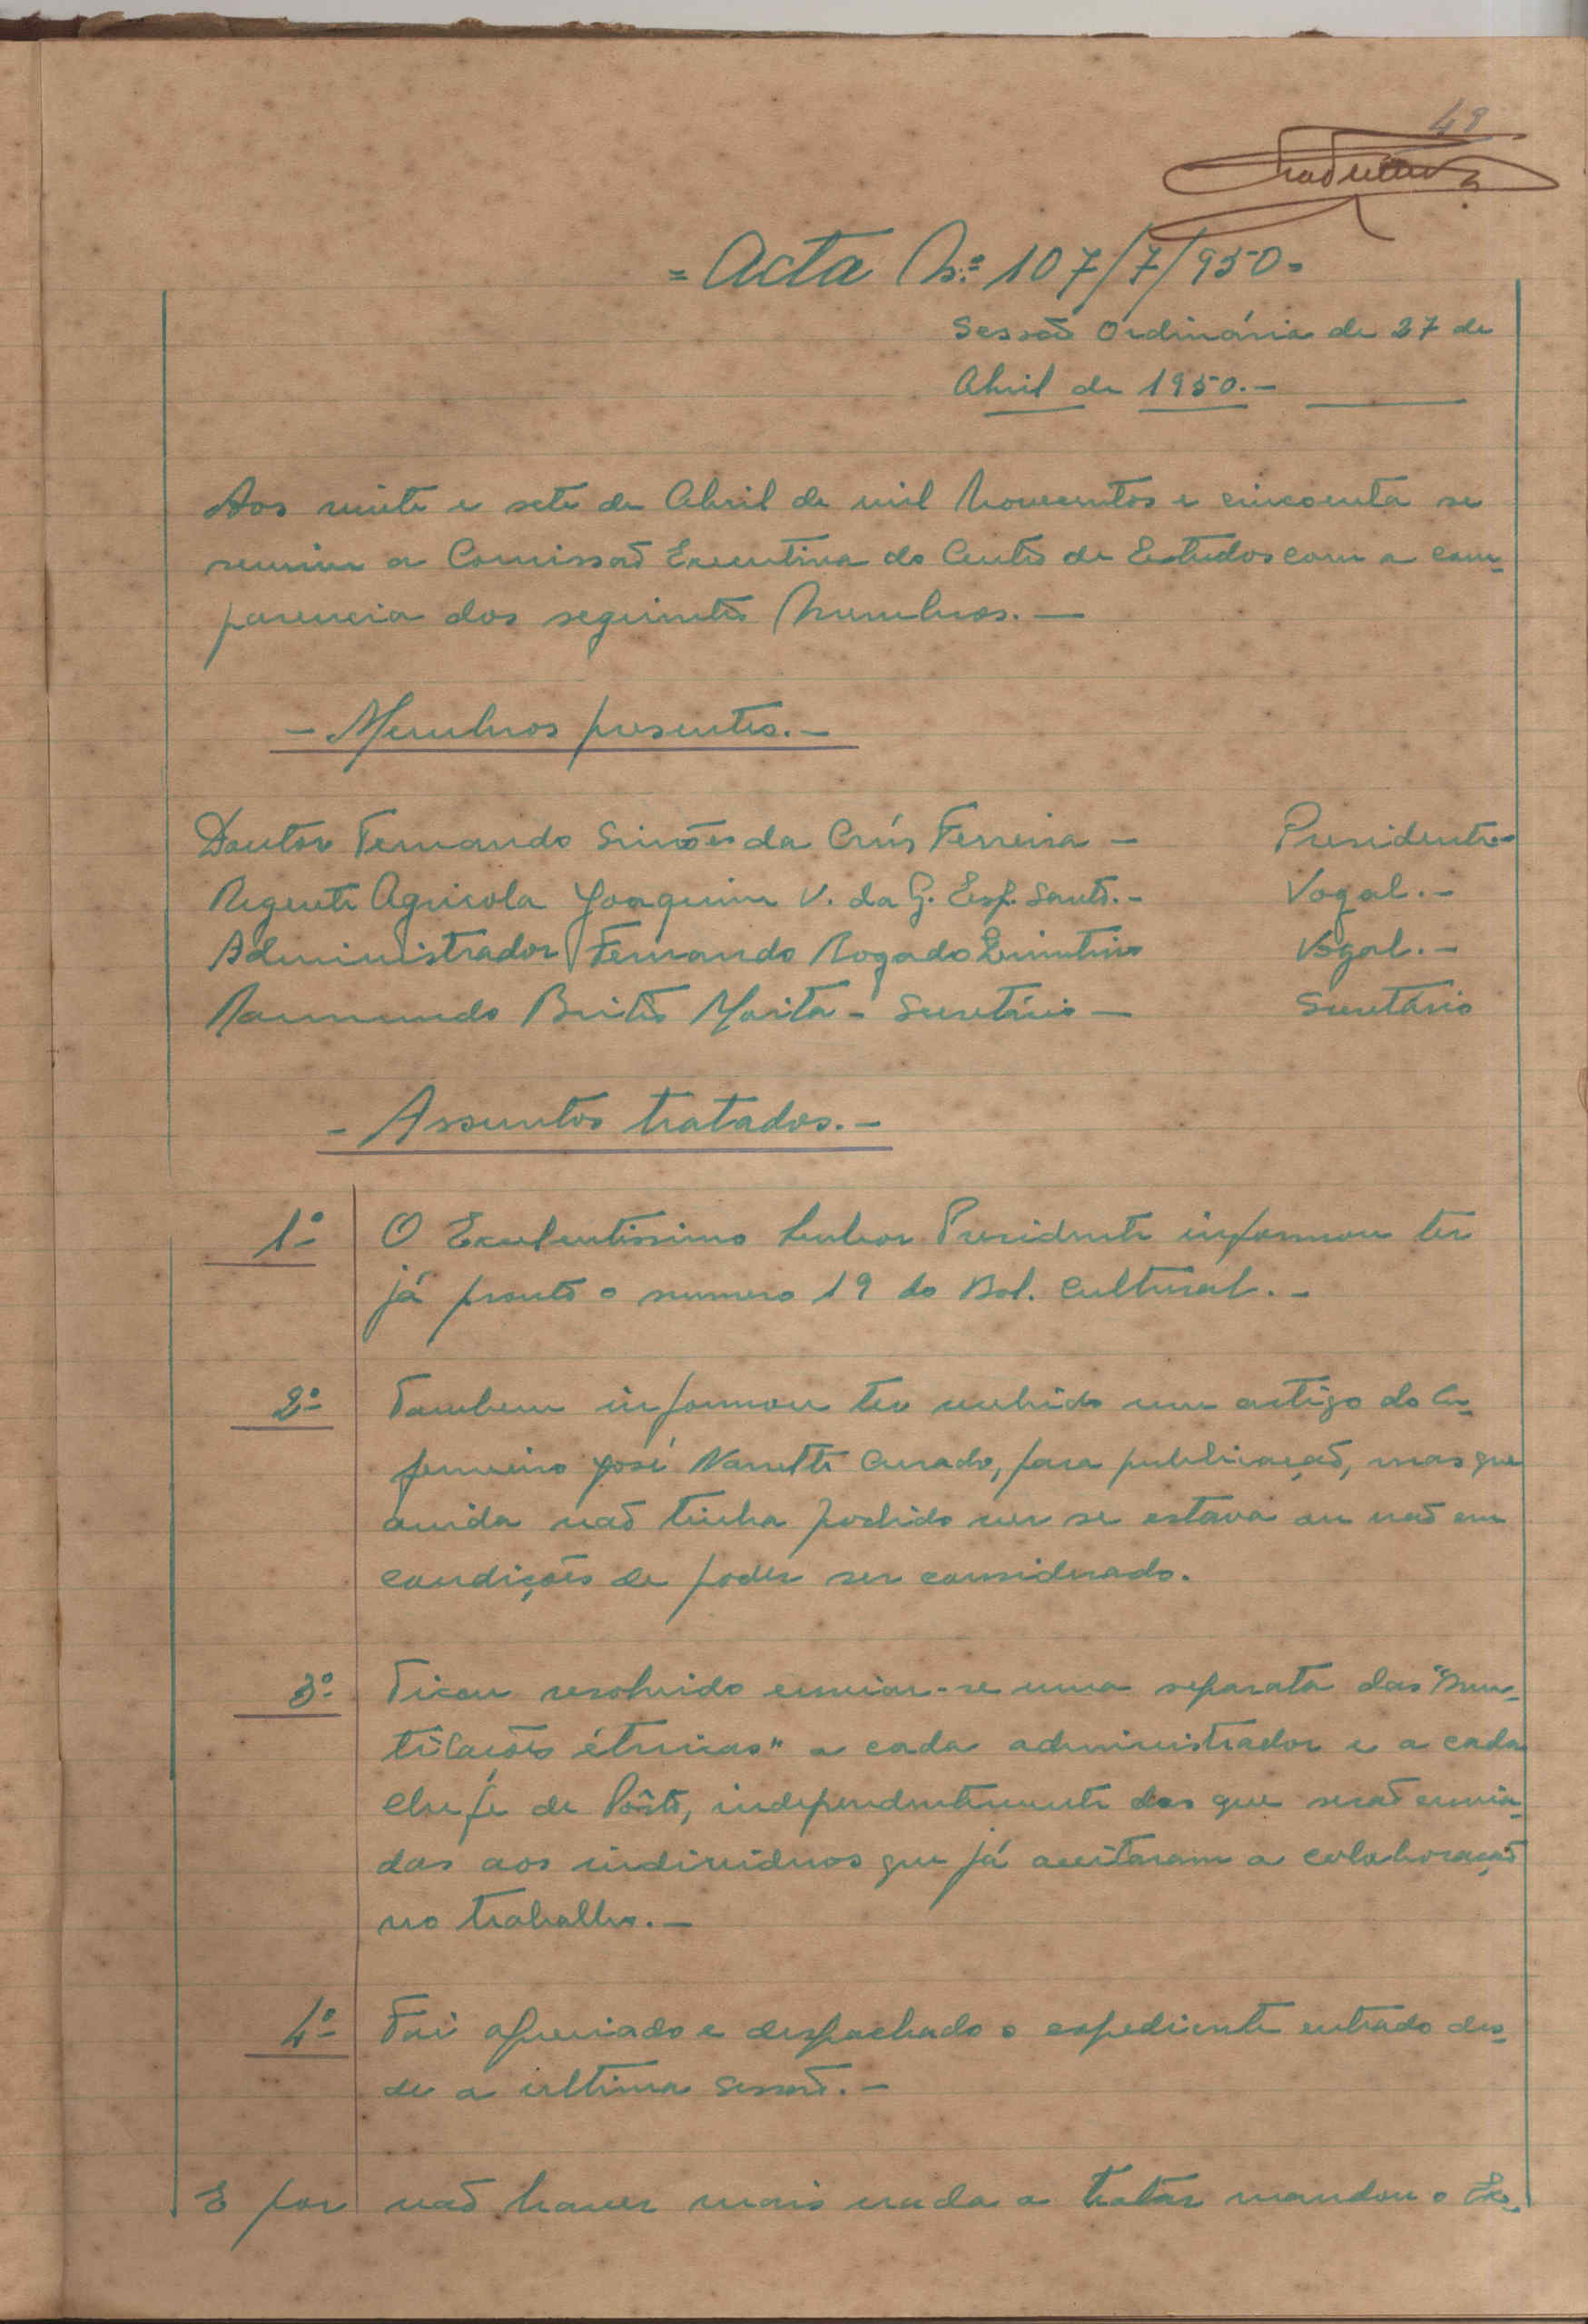 49
= Acta N.º 107/7/950 =
Sessão Ordinária de 27 de
Abril de 1950.-
Aos vinte e sete de Abril de mil novecentos e cincoenta se
reuniu a Comissão Executiva do Centro de Estudos com a com-
parencia dos seguintes Membros.-
- Membros presentes.-
Doutor Fernando Simões da Crús Ferreira - Presidente-
Regente Agricola Joaquim V. da G. Esp. Santo.- Vogal.-
Administrador Fernando Rogado Quintino Vogal.-
Raimundo Brito - Secretário - Secretário
- Assuntos tratados.-
1º O Excelentissimo Senhor Presidente informou ter
já pronto o numero 19 do Bol. Cultural.-
2º Tambem informou ter recebido um artigo do En-
fermeiro José Curado, para publicação, mas que
ainda não tinha podido ver se estava ou não em
condições de poder ser considerado.
3º Ficou resolvido enviar-se uma separata das "Mu-
tilações étnicas" a cada administrador e a cada
chefe de Pôsto, independentemente das que serão envia-
das aos individuos que já aceitaram a colaboração
no trabalho.-
4º Foi apreciado e despachado o expediente entrado des-
de a ultima sessão.-
E por não haver mais nada a tratar mandou o Ex-